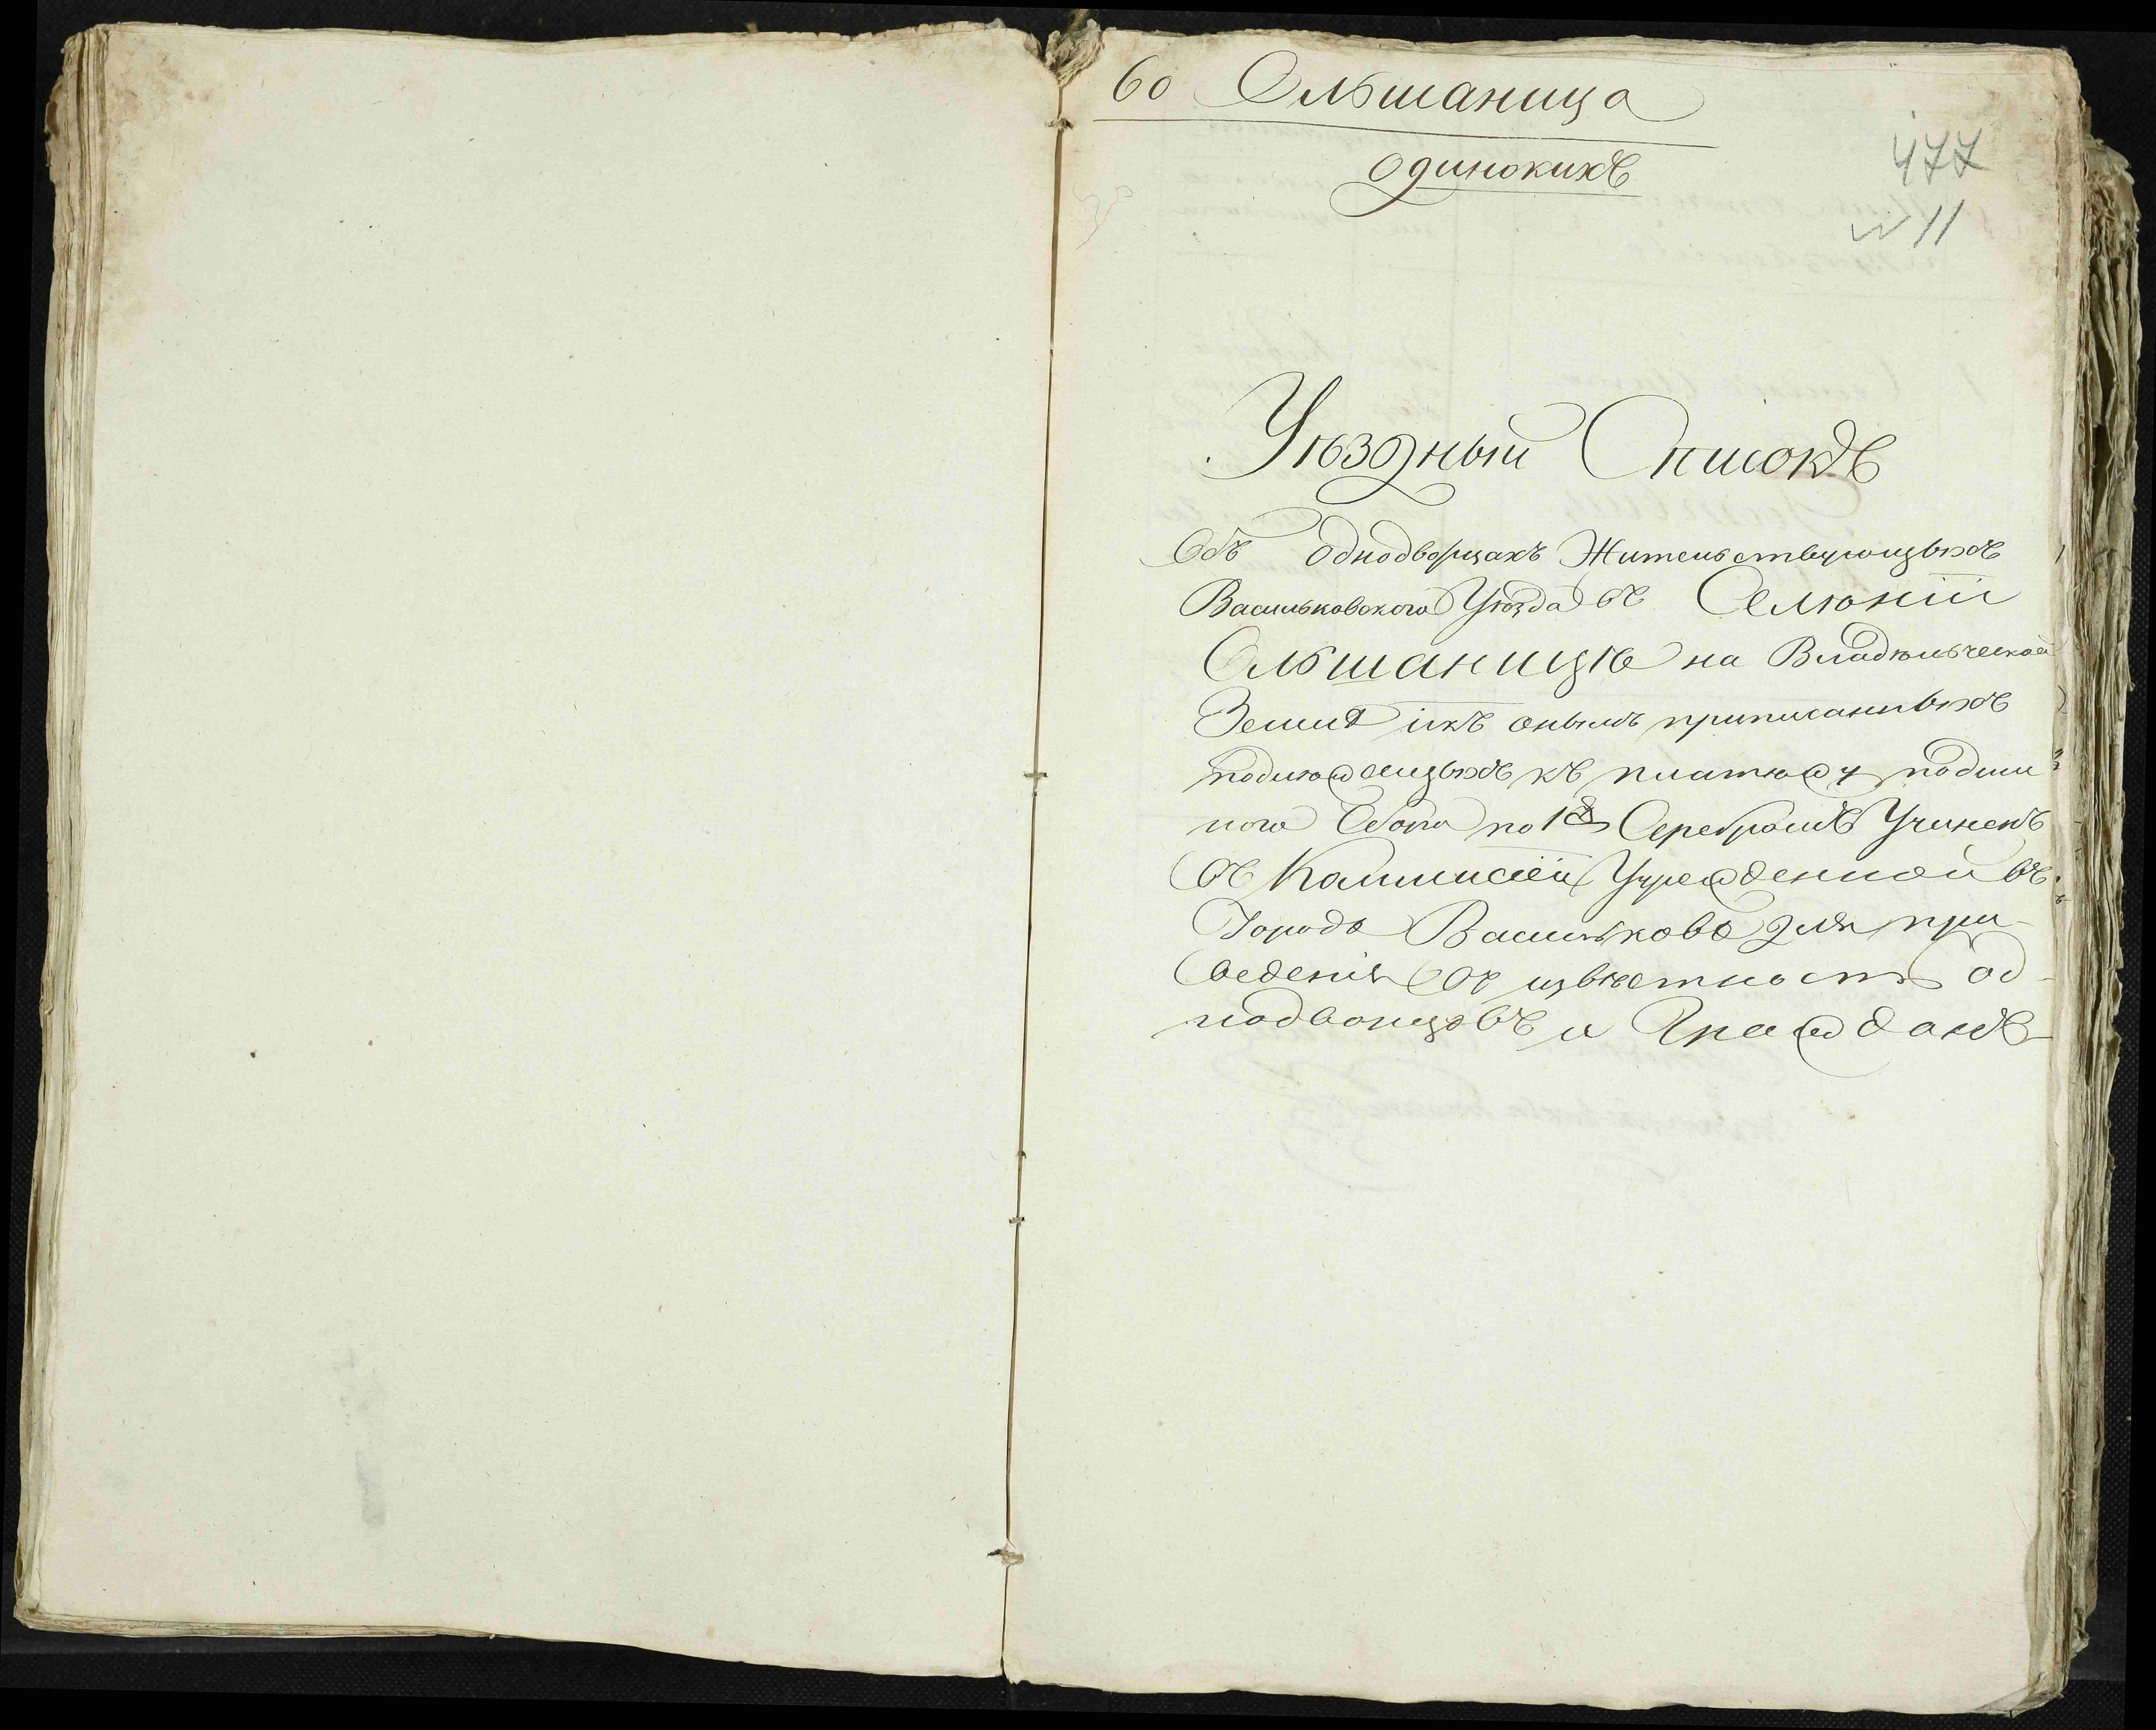 60 Ольшаница
одинокихъ
477
№ 11
Уѣздный Списокъ
Объ однодворцахъ Жительствующыхъ
Васильковского Уѣзда въ Селѣніи
Ольшаницѣ на Владѣльческой
Земли икъ онымъ приписанныхъ
подлѣжащыхъ къ платѣжу подым-
ного Сбора по 1 Серебромъ Учиненъ
въ Коммисіеи Учрежденной въ
Городѣ Василькове для при-
ведения въ извѣстность од-
нодворцовъ и Гражданъ